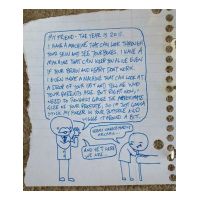 MY FRIEND - THE YEAR IS 2011.
I HAVE A MACHINE THAT CAN LOOK THROUGH
YOUR SKIN AND SEE YOUR BONES. I HAVE A
MACHINE THAT CAN KEEP YOU ALIVE EVEN
IF YOUR BRAIN AND HEART DON'T WORK.
I EVEN HAVE A MACHINE THAT CAN LOOK AT
A DROP OF YOUR SPIT AND TELL ME WHO
YOUR PARENTS ARE. BUT RIGHT NOW, I
NEED TO THE APPROXIMATE
SIZE OF YOUR PROSTATE, SO I'M JUST GONNA
STICK MY FINGER IN YOUR BUTTHOLE AND
IT AROUND A BIT.
AND YET HERE
WE ARE...